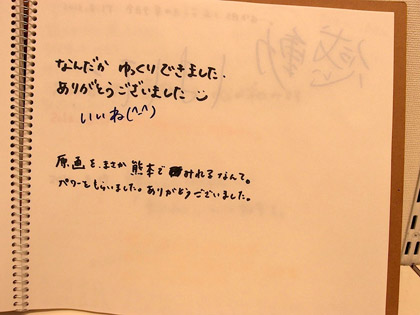 なんだか ゆっくりできました.
ありがとうございました
いいね(^-^)
原画を、まさか熊本でみれるなんて。
パワーをもらいました。ありがとうございました。
感動